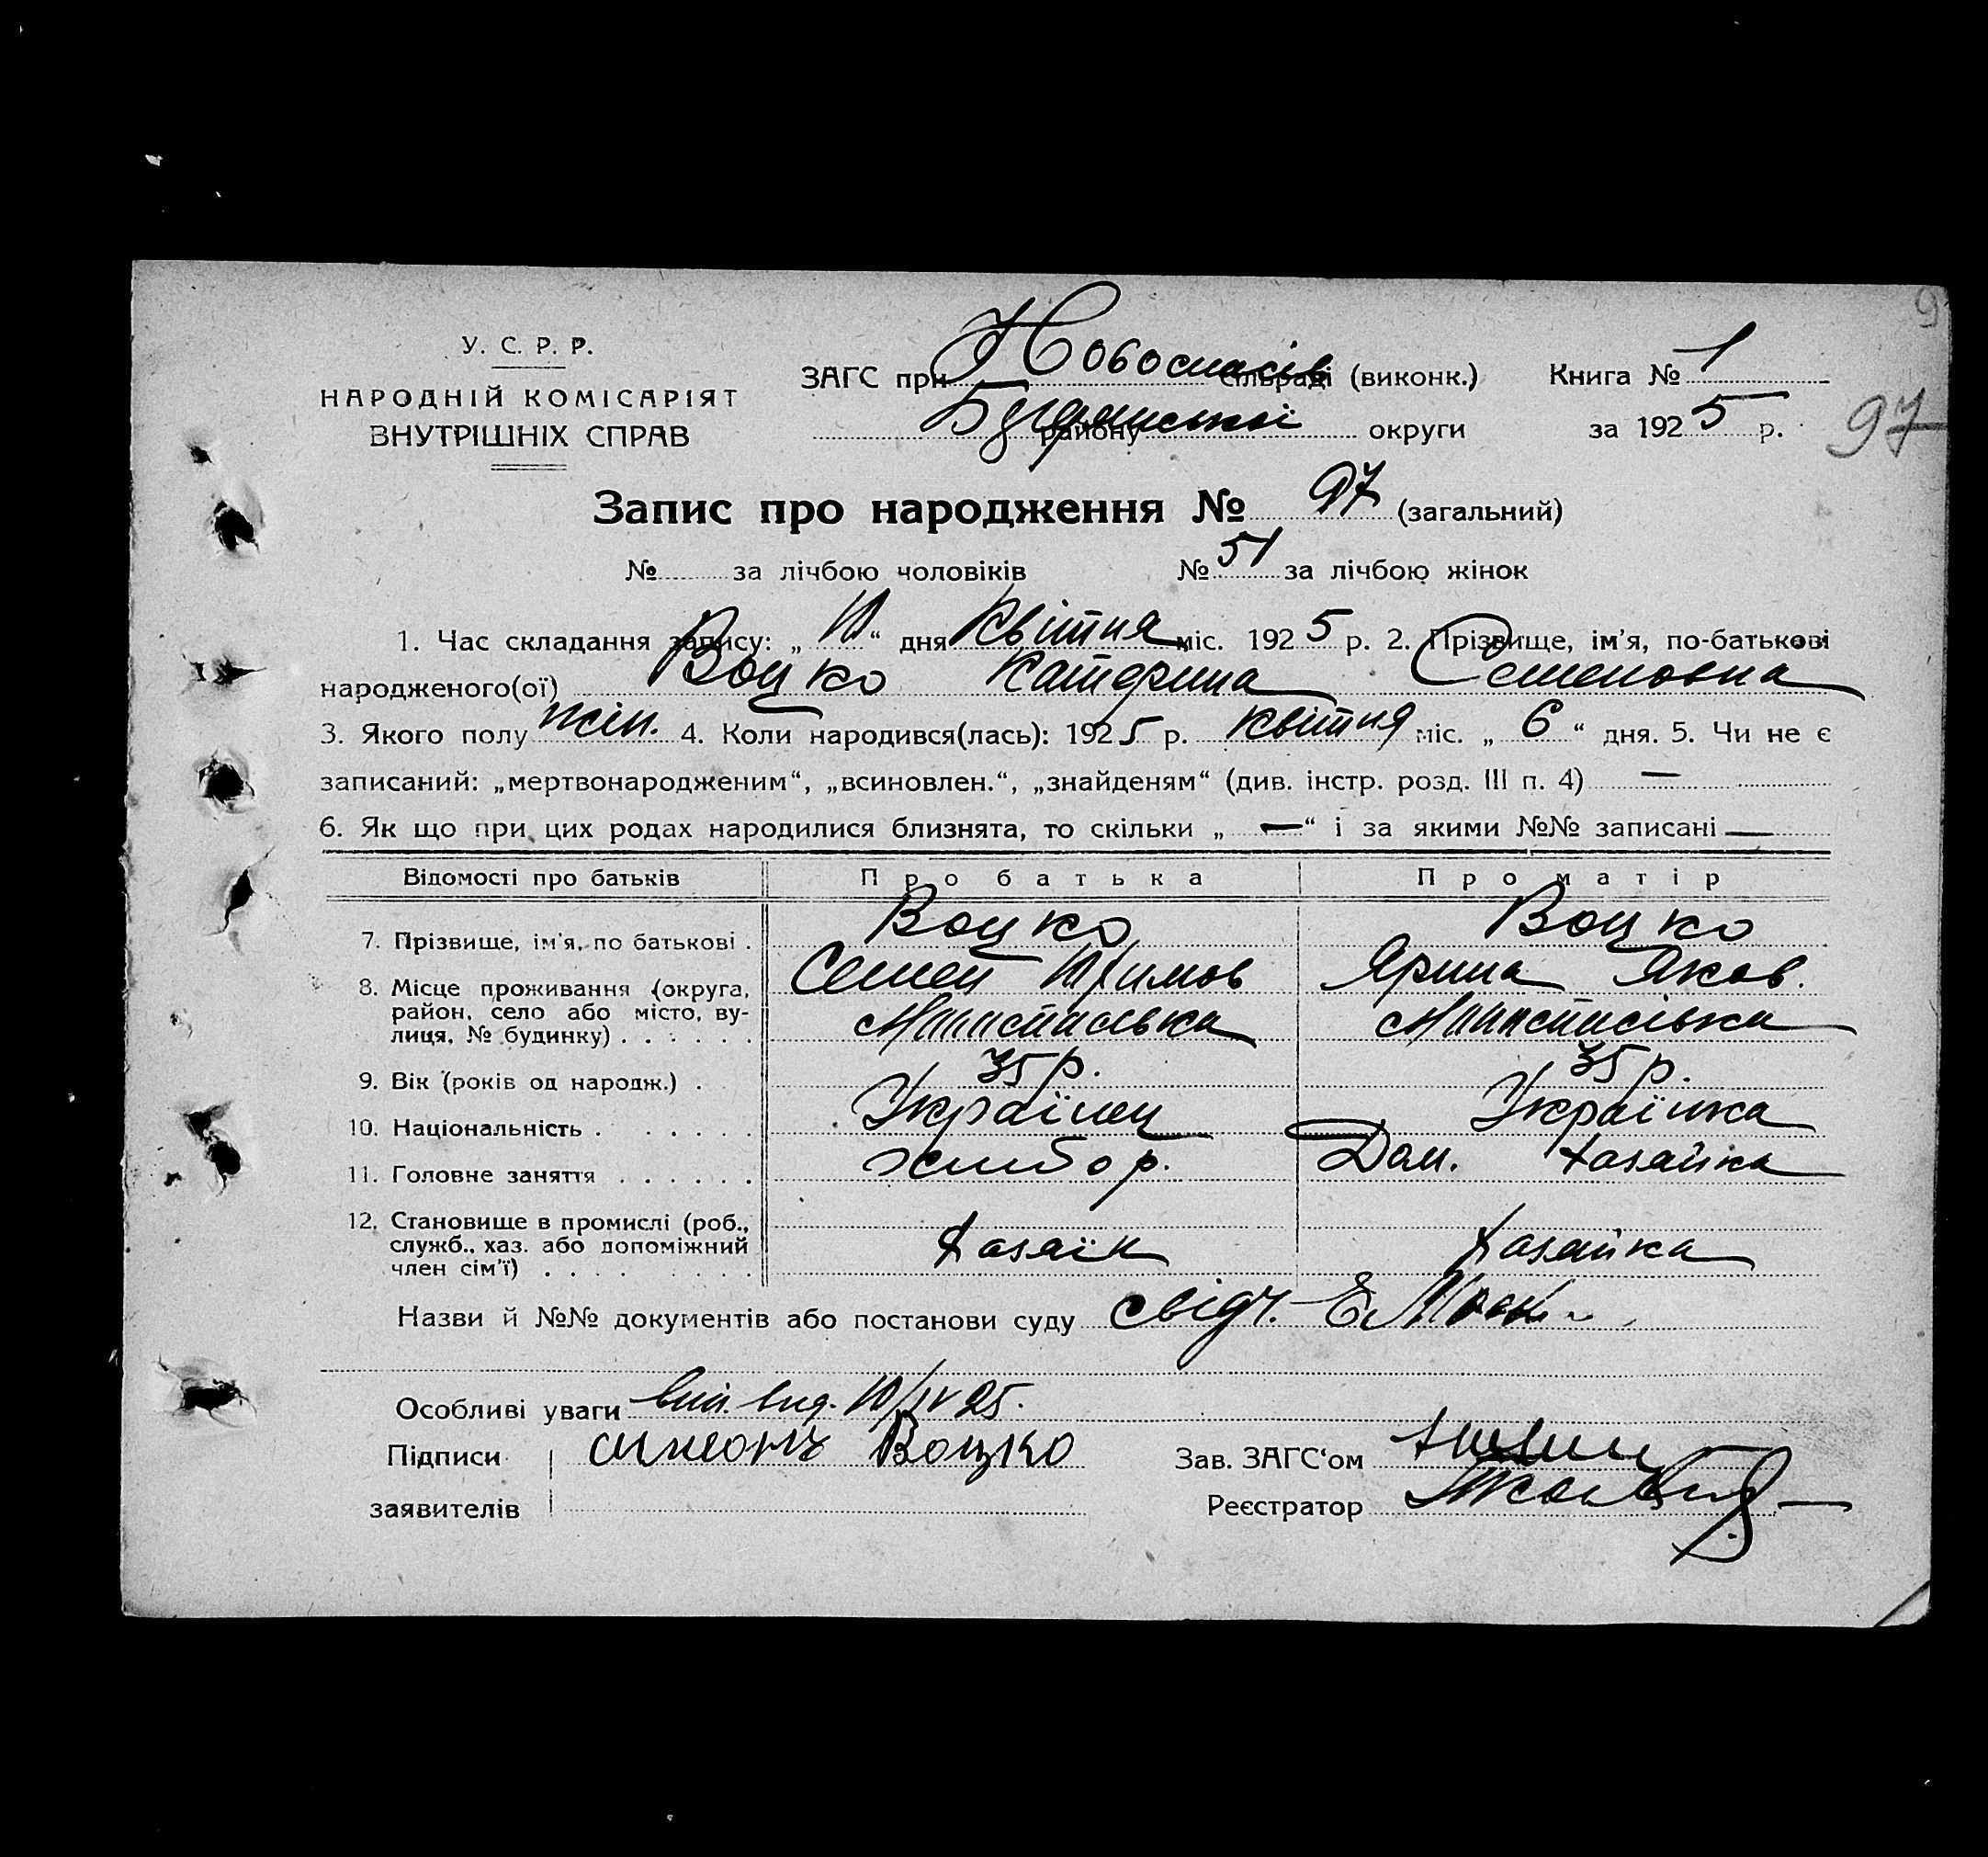 9
У. С. Р. Р.
НАРОДНІЙ КОМІСАРІЯТ
ВНУТРІШНІХ СПРАВ
ЗАГС при Новоспасів сільраді (виконк.) Книга № 1
району округи за 1925 р.
97
Запис про народження № 97 (загальний)
№ за лічбою чоловіків № 51 за лічбою жінок
1. Час складання запису: „ 10 “ дня Квітня міс. 1925 р. 2. Прізвище, ім'я, по-батькові
народженого(ої) Воцко Катерина Семеновна
3. Якого полу жін. 4. Коли народився(лась): 1925 р. квітня міс. „ 6 “ дня. 5. Чи не є
записаний: „мертвонародженим“, „всиновлен.“, „знайденям“ (див. інстр. розд. III п. 4) —
6. Як що при цих родах народилися близнята, то скільки „ — “ і за якими №№ записані —
Відомості про батьків Про батька Про матір
7. Прізвище, ім'я, по батькові . Воцко Воцко
Семен Ярина Яков.
8. Місце проживання (округа,
район, село або місто, ву-
лиця, № будинку) . . . . . .
9. Вік (років од народж.) . 35 р. 35 р.
10. Національність . . . . . . Українец Українка
11. Головне заняття . . . . . . хлібор. Дом. хазайка
12. Становище в промислі (роб.,
служб., хаз. або допоміжний
член сім'ї) . . . . . . . . Хазаїн Хазайка
Назви й №№ документів або постанови суду свідч.
Особливі уваги вип. вид. 10/IV 25.
Підписи Воцко Зав. ЗАГС‘ом
заявителів Реєстратор